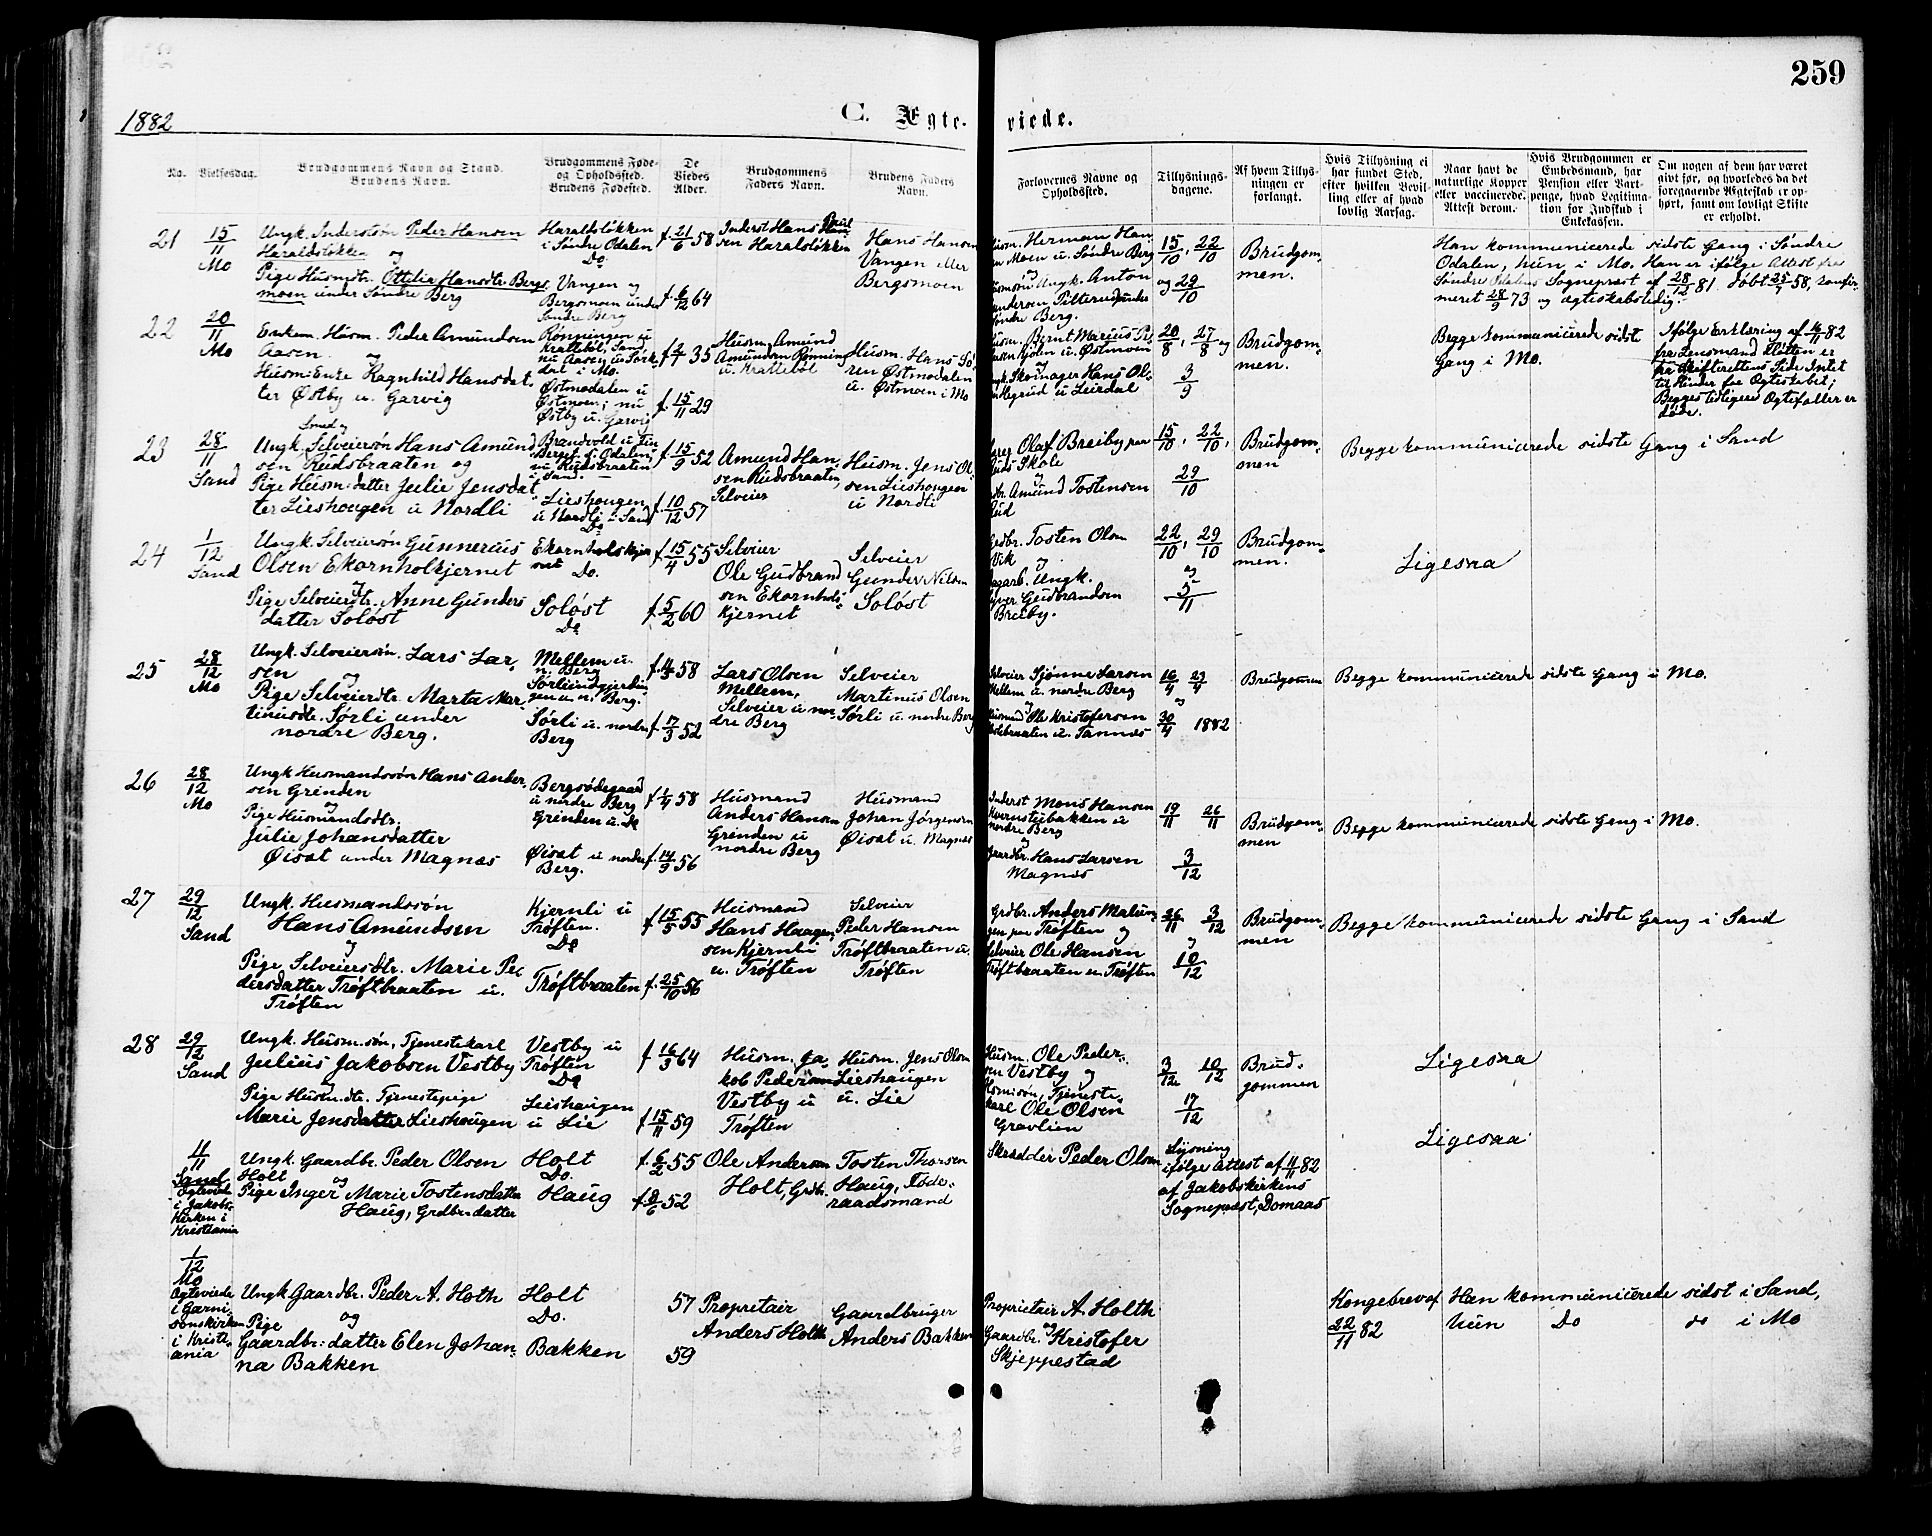 259
1882
C. Ægte- viede.
No.
Vielsesdag.
Brudgommens Navn og Stand.
Brudens Navn.
Brudgommens Føde-
og Opholdssted.
Brudens Fødested.
De
Viedes
Alder.
Brudgommens
Faders Navn.
Brudens Faders
Navn.
Forlovernes Navne og
Opholdssted.
Tillysnings-
dagene.
Af hvem Tillys-
ningen er
forlangt.
Hvis Tillysning ei
har fundet Sted,
efter hvilken Bevil-
ling eller af hvad
lovlig Aarsag.
Naar havt de
naturlige Kopper
eller vaccinerede.
Attest derom.
Hvis Brudgommen er
Embedsmand, har
Pension eller Vart-
penge, hvad Legitima-
tion for Indskud i
Enkekassen.
Om nogen af dem har været
givt før, og hvorledes da det
foregaaende Ægteskab er op-
hørt, samt om lovligt Skifte
er erholdt.
21
15/11
Mo
Ungk. Inderstsøn Peder Hansen
Haraldsløkken og
Pige Husmdtr. Ottilie Hansdtr Bergs-
moen under Søndre Berg
Haraldsløkken
i Søndre Odalen
Do
Vangen og
Bergsmoen under
Søndre Berg
f. 21/6 58
f. 6/12 64
Inderst Hans Paul
sen Haralsløkken
Hans Hansen
Vangen eller
Bergsmoen
Husm. Herman Han-
en Moen u. Søndre Berg
og
Ungk. Anton
Søndre Berg.
15/10, 22/10
og 29/10
Brudgom-
men.
Han kommunicerede sidste Gang i Søndre
Odalen, hun i Mo. Han er ifølge Attest fra
Søndre Odalens Sogneprest af 28/12 81 døbt 25/7 58, konfir-
meret 28/9 73 og ægteskabsledig.
22
20/11
Mo
Enkem. Husm. Peder Amundsen
Aasen
og
Husm: Enke Ragnhild Hansdat-
ter Østby u. Garvig
Rønningen u
Krattebøl, Sand,
nu Aasen u. Sork-
dal i Mo.
Østmodalen u
Østmoen; nu
Østby u. Garvig
f. 2/7 35
f. 15/11 29
Husm. Amund
Amundsen Rønning
u. Krattebøl
Husm. Hans Sø-
ren Østmodalen
u. Østmoen i Mo
Husm. Bernt Marius Pe
u. Østmoen
og
Skomager Hans Ol-
u Leirdal
20/8, 27/8 og
3/9
Brudgom-
men.
Begge kommunicerede sidste
Gang i Mo.
Ifølge Erklæring af 16/11 82
fra Lensmand Kløtten er
fra Skifterettens Side Intet
til Hinder for Ægteskabet;
Begges tidligere Ægtefæller er
døde.
23
28/11
Sand
Smed og
Ungk. Selveiersøn Hans Amund
sen Rudsbraaten og
Pige Husm. datter Julie Jensdat
ter Lieshougen u Nordli
Brandvold u
S. Odalen,
nu Rudsbraaten
i Sand.
Lieshougen
u Nordli i Sand
Do
f. 15/9 52
f. 10/12 57
Amund Han-
sen Rudsbraaten,
Selveier
Husm. Jens Ol-
sen Lieshougen
u Nordli
Lærer Olaf Breiby paa
Ruds Skole
og
Gdbr. Amund Tostensen
Rud
15/10, 22/10,
29/10
Brudgom-
men
Begge kommunicerede sidste Gang i Sand
24
1/12
Sand
Ungk. Selveiersøn Gunnerius
Olsen Ekornholkjernet
og
Pige Selveierdtr. Anne Gunders
datter Soløst
Ekornholskjer
net
Do.
Soløst
Do
f. 15/4 55
f. 5/2 60
Selveier
Ole Gudbrand
sen Ekornhols-
kjernet
Selveier
Gunder Nilsen
Soløst
Gedbr. Tosten Olsen
Vik
og
Dagarb. Ungk.
Gudbrandsen
Breiby.
22/10, 29/10
og
5/11
Brudgom-
men.
Ligesaa
25
28/12
Mo
Ungk. Selveiersøn. Lars Lar-
sen
og
Pige Selveierdtr. Marta Mar-
tinusdtr. Sørli under
nordre Berg.
Mellem u.
n. Berg
gen u. n. Berg.
Sørli u. nordre
Berg
f. 4/5 58
f. 17/3 52
Lars Olsen
Mellem,
Selveier u nor-
dre Berg
Selveier
Martinus Olsen
Sørli u. nordre Berg
Selveier Sjønne Larsen
Mellem u. nordre Berg
og
Husmand Ole Kristofersen
u. Tannæs
16/4 23/4
og
30/4 1882
Brudgommen
Begge kommunicerede sidste Gang i Mo.
26
28/12
Mo
Ungk. Husmandssøn Hans Ander-
sen Grinden
og
Pige Husmandsdtr.
Julie Johansdatter
Øisæt under Magnæs
Bergsødegaard
u nordre Berg
Grinden u. Do
Øisæt u nordre
Berg.
f. 1/4 58
f. 14/9 56
Husmand
Anders Hansen
Grinden u
nordre Berg
Husmand
Johan Jørgensen
Øisæt u. Magnæs
Inderst Mons Hansen
u
nordre Berg
og
Gaardbr. Hans Larsen
Magnæs
19/11 26/11
3/12
Brudgom-
men
Begge kommunicerede sidste Gang i Mo.
27
29/12
Sand
Ungk. Husmandssøn
Hans Amundsen
og
Pige Selveiersdtr. Marie Pe
dersdatter Trøftbraaten u.
Trøften
Kjernli u
Trøften.
Do
Trøftbraaten
f. 15/5 55
f. 25/10 56
Husmand
Hans Haagen-
sen Kjernli
u. Trøften
Selveier
Peder Hansen
Trøftbraaten u.
Trøften
Grdbr. Anders Malun-
gen paa Trøften og
Selveier Ole Hansen
Trøftbraaten u. Trøften
26/11 3/12
og
10/12
Brudgom-
men
Begge kommunicerede sidste Gang i Sand
28
29/12
Sand
Ungk. Husm. søn, Tjenestekarl
Julius Jakobsen Vestby
og
Pige Husm. dtr. Tjenestepige
Marie Jensdatter Lieshaugen
Vestby u
Trøften
Do
Leishaugen
u Lie
f 16/3 64
f 15/11 59
Husm. Ja-
kob Pedersen
Vestby u
Trøften
Husm. Jens Olsen
Lieshaugen
u. Lie
Husm. Ole Peder-
sen Vestby og
Husmsøn, Tjeneste-
karl Ole Olsen
Gravlien
3/12 10/12
17/12
Brud-
gommen
Ligesaa
4/11
Sand
Ægteviede
i Jakobs-
Kirken i
Kristiania
Ungk. Gaardbr. Peder Olsen
Holt og
Pige Inger Marie Tostensdatter
Haug, Grdbr. datter
Holt
Do.
Haug
f. 6/2 55
f. 8/6 52
Ole Andersen
Holt, Grdb.
Tosten Thorsen
Haug, Føde-
raadsmand
Skrædder Peder Olsen
Lysning
ifølge Attest af 4/11 82
af Jakobskirkens
Sogneprest, Domaas
Ligesaa
1/12
Mo
Ægteviede
i Garni-
sonskirken
i Kristi-
ania
Ungk. Gaardbr. Peder A. Holth
og
Pige
Gaardbr: datter Elen Johan-
na Bakken
Holt
Do.
Bakken
57
59
Proprietair
Anders Holth
Gaardbruger
Anders Bakken
Proprietair A. Holth
og
Gaardbr. Kristofer
Skjeppestad
Kongebrev af
22/11 82
Han kommunicerede sidst i Sand,
hun Do do i Mo